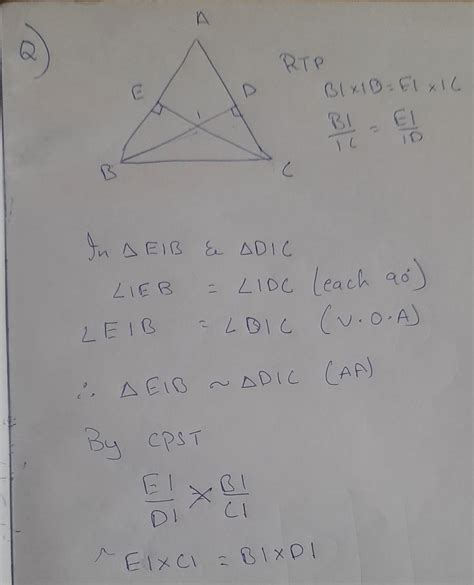 Q)
A
RTP
E
D
BI×ID=EI×IC
I
BI/IC = EI/ID
B
C
In △EIB & △DIC
∠IEB = ∠IDC (each 90°)
∠EIB = ∠DIC (V.O.A)
∴ △EIB ~ △DIC (AA)
By CPST
EI/DI × BI/CI
~ EI×CI = BI×DI